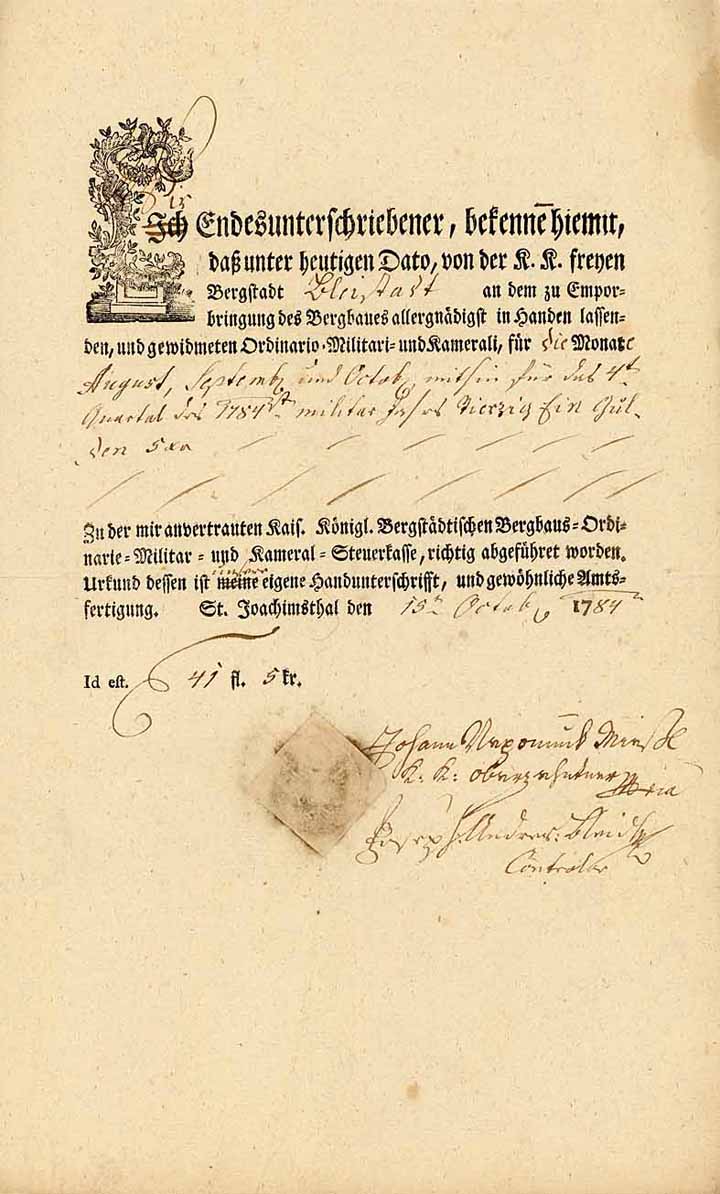 Ich Endesunterschriebener, bekenne hiemit,
daß unter heutigen Dato, von der K. K. freyen
Bergstadt Bleistadt an dem zu Empor=
bringung des Bergbaues allergnädigst in Handen lassen=
den, und gewidmeten Ordinario-Militari- und Kamerali, für die Monate
August, Septemb und Octob mithin für das 4t
Quartal des 1784st militar Jahrs Vierzig Ein Gul-
den 5 xr
Zu der mir anvertrauten Kais. Königl. Bergstädtischen Bergbaus=Ordi=
narie=Militar = und Kameral = Steuerkasse, richtig abgeführet worden.
unsere
Urkund dessen ist meine eigene Handunterschrifft, und gewöhnliche Amts=
fertigung. St. Joachimsthal den 15n Octob 1784
Id est. 41 fl. 5 kr.
Johann Nepomuck
K: K: oberzehntner mpria
Joseph Andres:
Controlor